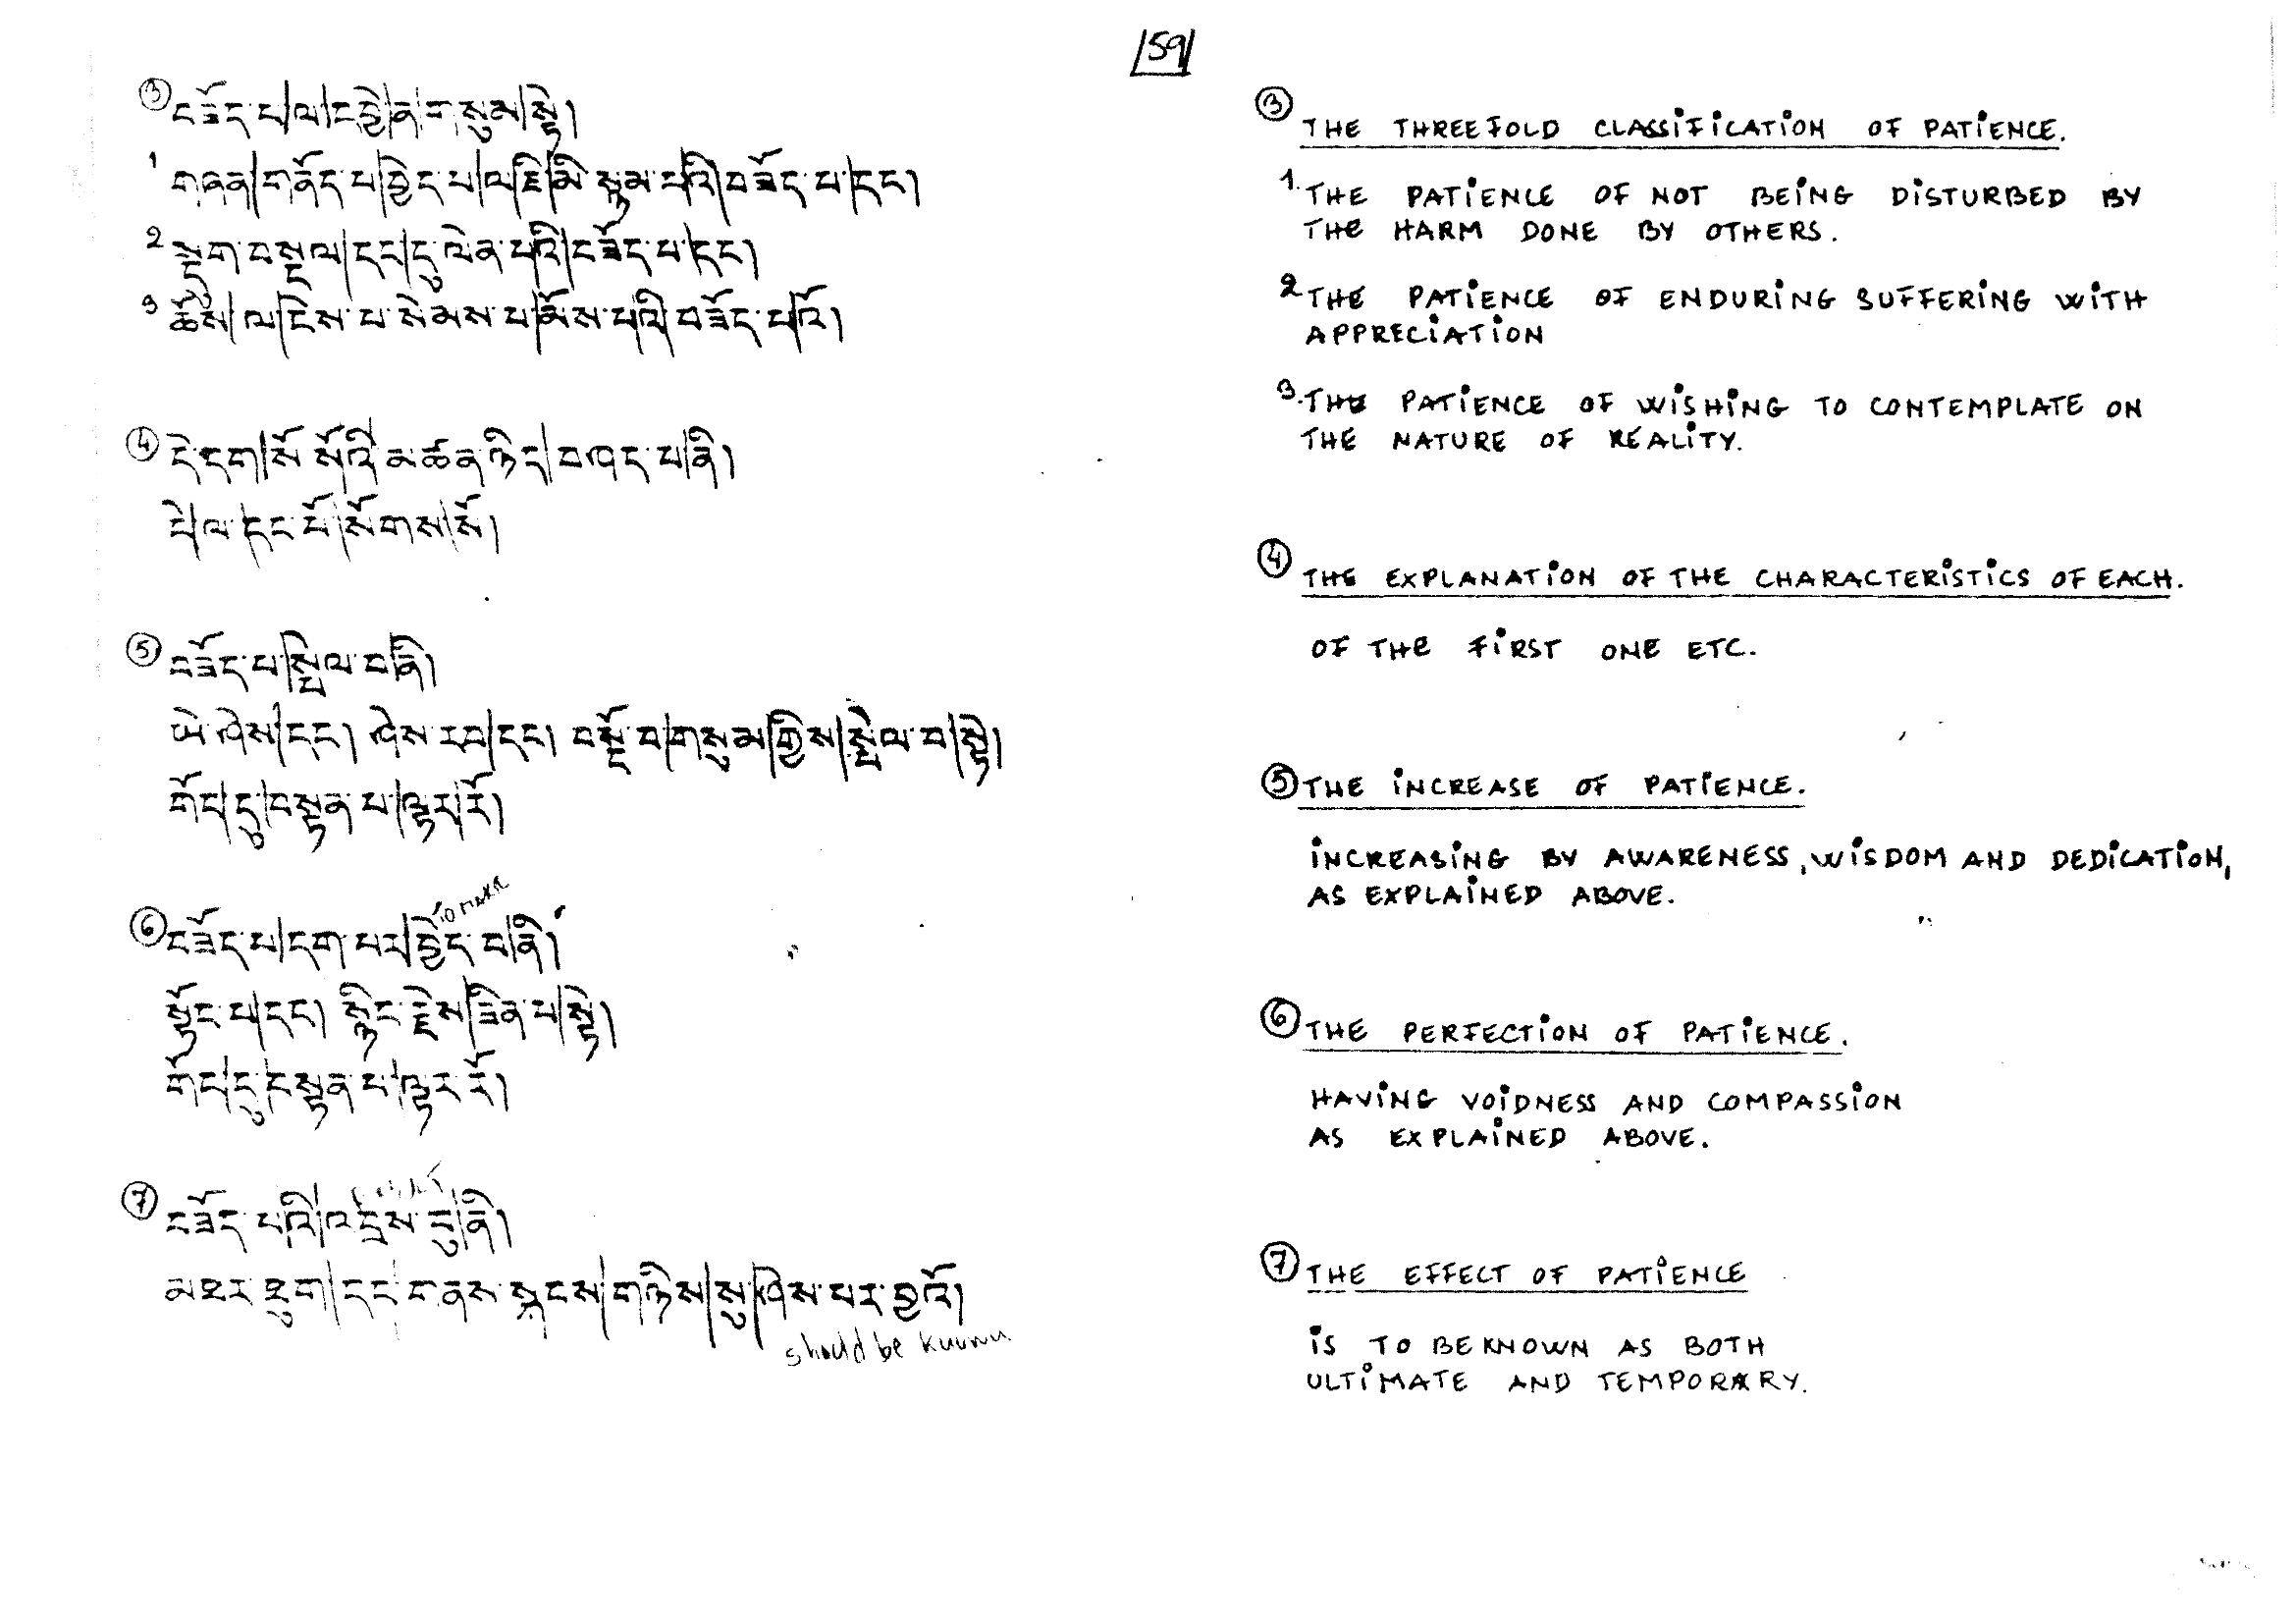 59
③ བཟོད་པ་ལ་དབྱེ་ན་གསུམ་སྟེ།
1 གཞན་གནོད་པ་བྱེད་པ་ལ་ཇི་མི་སྙམ་པའི་བཟོད་པ་དང།
2 སྡུག་བསྔལ་དང་དུ་ལེན་པའི་བཟོད་པ་དང།
3 ཆོས་ལ་ངེས་པ་སེམས་པ་མོས་པའི་བཟོད་པའོ།
④ དེ་དག་སོ་སོའི་མཚན་ཉིད་བཤད་པ་ནི།
དེ་ལ་དང་པོ་སོགས་སོ།
⑤ བཟོད་པ་སྤེལ་བ་ནི།
ཡེ་ཤེས་དང། ཤེས་རབ་དང། བསྔོ་བ་གསུམ་གྱིས་སྤེལ་བ་སྟེ།
གོང་དུ་བསྟན་པ་ལྟར་རོ།
to make
⑥ བཟོད་པ་དག་པར་བྱེད་པ་ནི།
སྟོང་པ་དང། སྙིང་རྗེས་ཟིན་པ་སྟེ།
གོང་དུ་བསྟན་པ་ལྟར་རོ།
⑦ བཟོད་པའི་འབྲས་བུ་ནི།
མཐར་ཐུག་དང་གནས་སྐབས་གཉིས་སུ་ཤེས་པར་བྱའོ།
should be known
③ THE THREEFOLD CLASSIFICATION OF PATIENCE.
1. THE PATIENCE OF NOT BEING DISTURBED BY
THE HARM DONE BY OTHERS.
2 THE PATIENCE OF ENDURING SUFFERING WITH
APPRECIATION
3. THE PATIENCE OF WISHING TO CONTEMPLATE ON
THE NATURE OF REALITY.
④ THE EXPLANATION OF THE CHARACTERISTICS OF EACH.
OF THE FIRST ONE ETC.
⑤ THE INCREASE OF PATIENCE.
INCREASING BY AWARENESS, WISDOM AND DEDICATION,
AS EXPLAINED ABOVE.
⑥ THE PERFECTION OF PATIENCE.
HAVING VOIDNESS AND COMPASSION
AS EXPLAINED ABOVE.
⑦ THE EFFECT OF PATIENCE
IS TO BE KNOWN AS BOTH
ULTIMATE AND TEMPORARY.